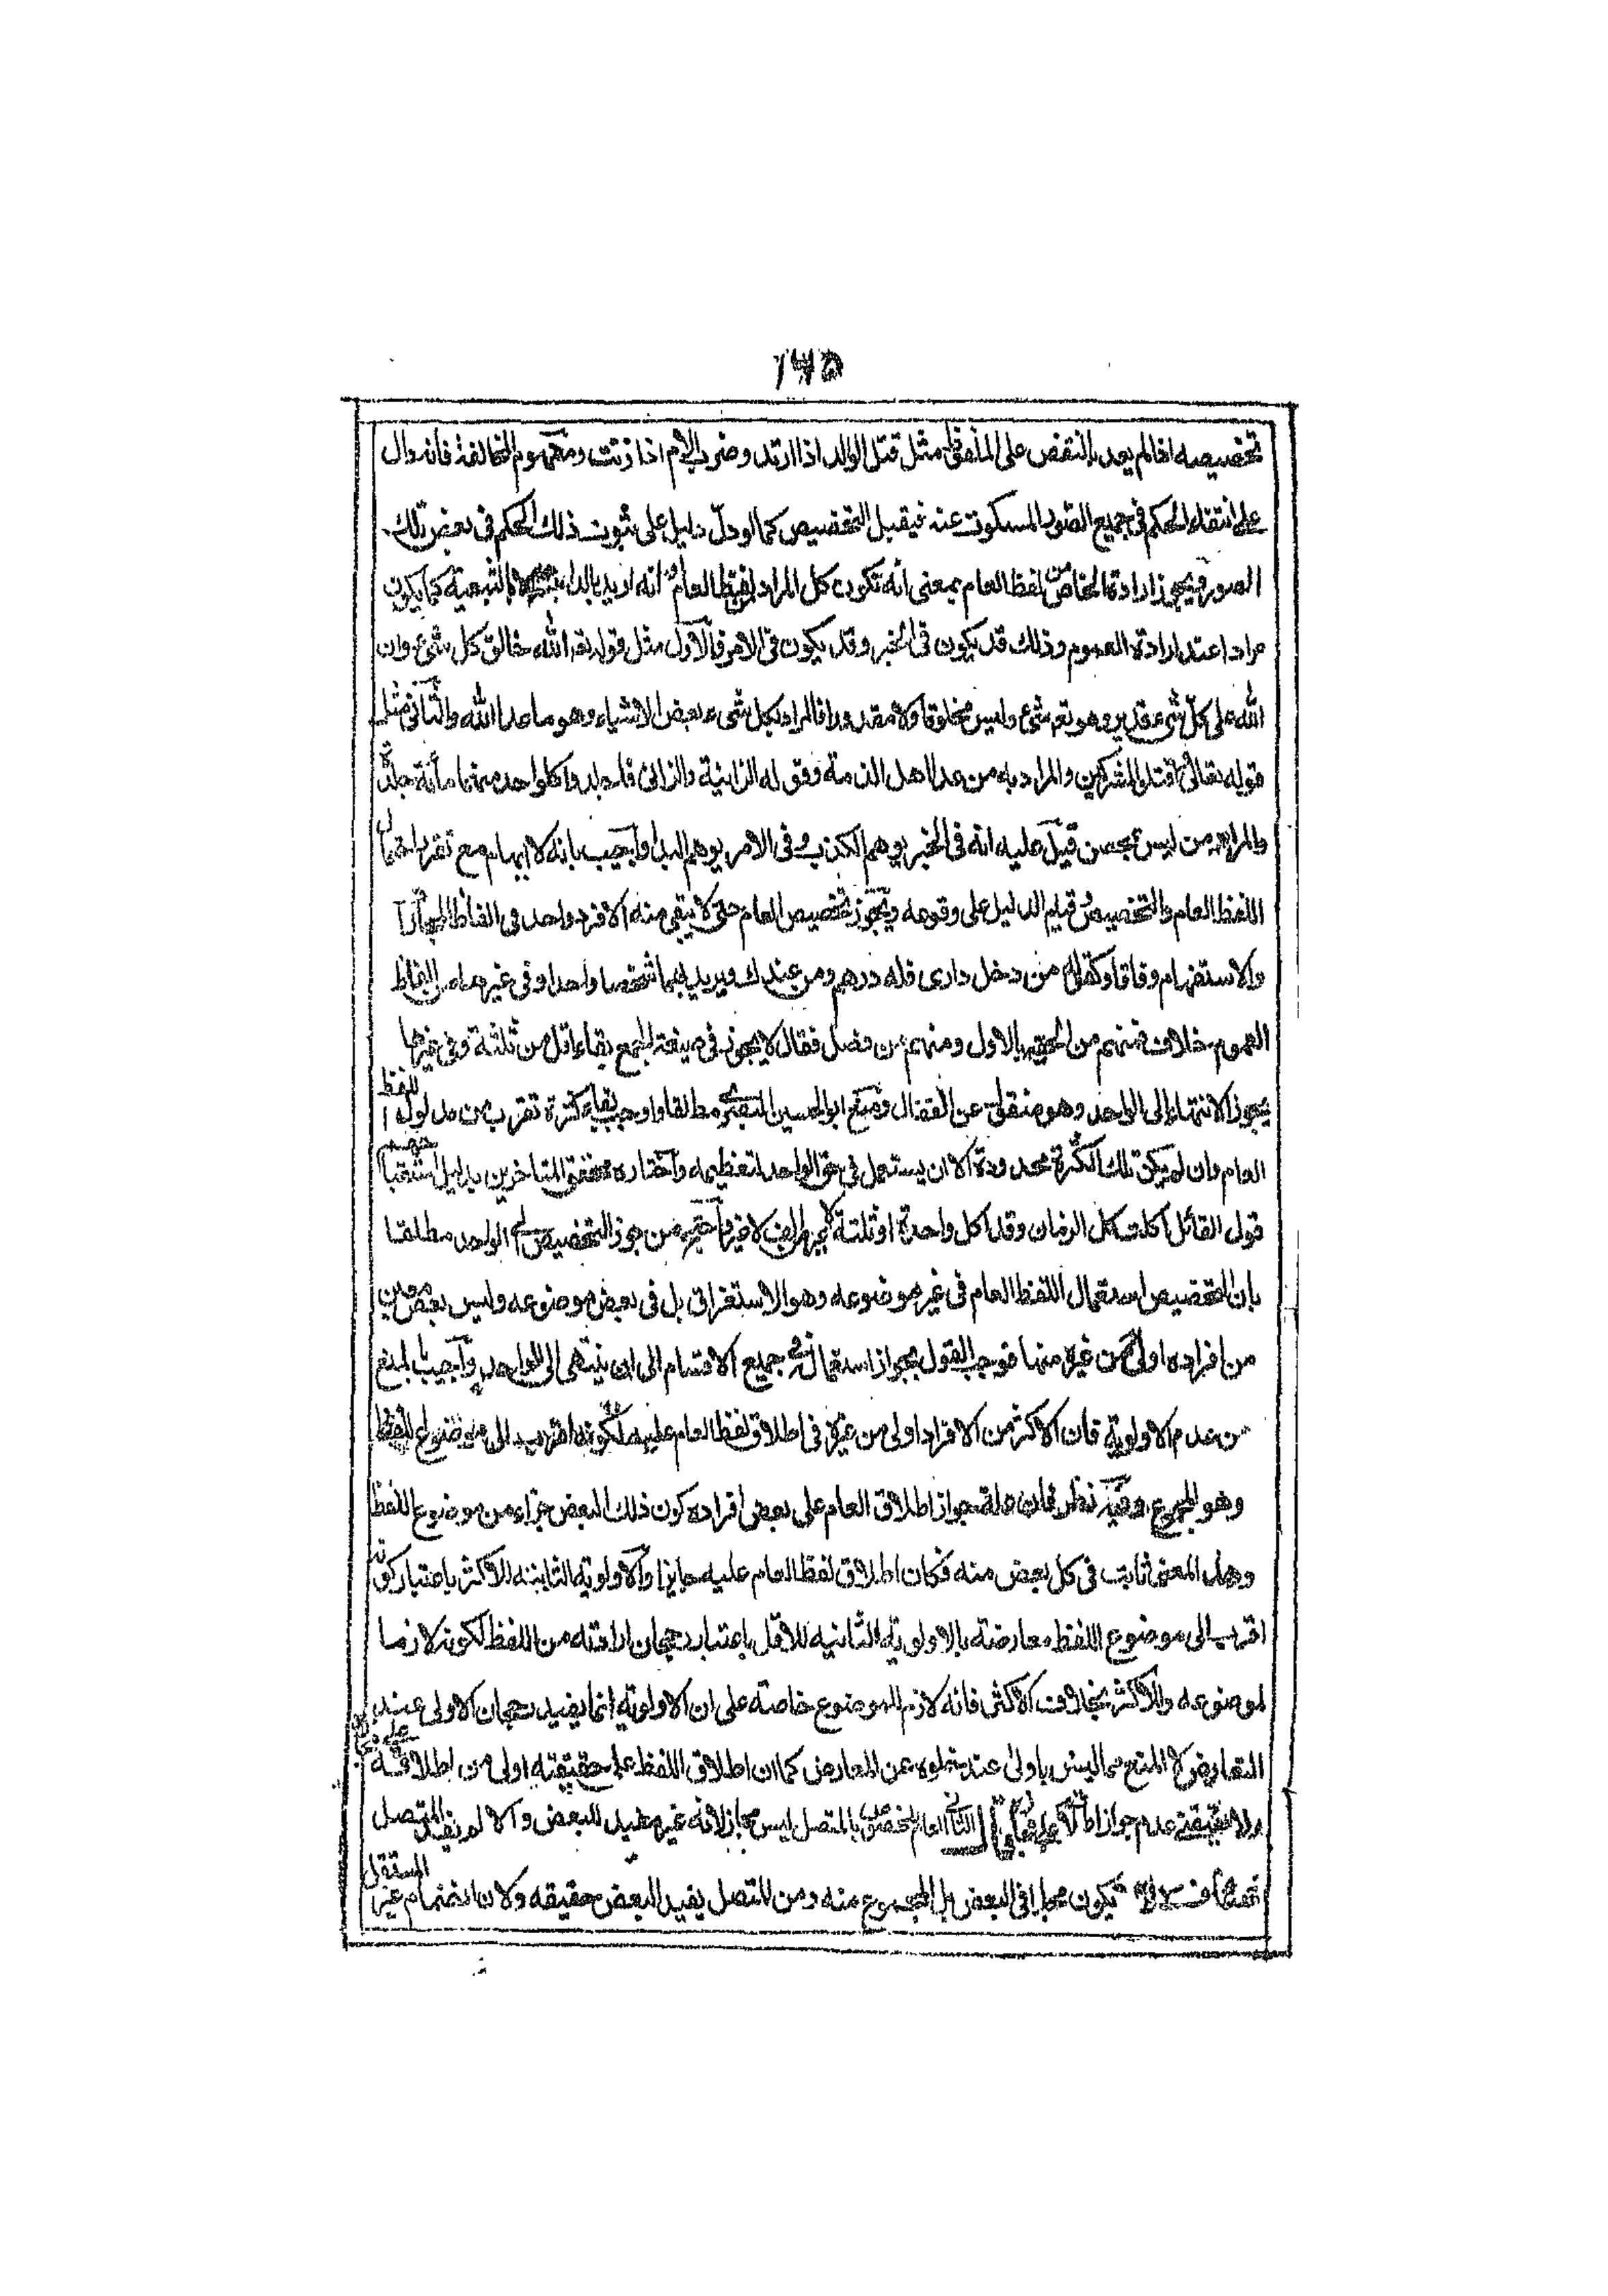 ١٧٥
تخصيصه اذا لم يعد بالنقض على الملفوظ مثل قتل الوالد اذا ارتد وضرب الام اذا زنت ومفهوم المخالفة فانه دال
على انتفاء الحكم فى جميع الصور المسكوت عنه فيقبل التخصيص كما لو دل دليل على ثبوت ذلك الحكم فى بعض تلك
الصور ويجوز ارادة الخاص من لفظ العام بمعنى انه تكون كل المراد بلفظ العام انه اريد بالذات لا بالتبعية كما يكون
مرادا عند ارادة العموم وذلك قد يكون فى الخبر وقد يكون فى الامر فالاول مثل قوله تعه الله خالق كل شئ وان
الله على كل شئ قدير وهو تعه شئ وليس مخلوقا ولا مقدورا فالمراد بكل شئ بعض الاشياء وهو ما عدا الله والثانى مثل
قوله تعالى اقتلوا المشركين والمراد به من عدا اهل الذمة وقوله الزانية والزانى فاجلدوا كل واحد منهما مائة جلدة
والمراد من ليس بمحصن قيل عليه انه فى الخبر يوهم الكذب وفى الامر يوهم البداء واجيب بانه لا ايهام مع تقرير احتمال
اللفظ العام والتخصيص قيام الدليل على وقوعه ويجوز تخصيص العام حتى لا يبقى منه الا فرد واحد فى الفاظ المجازاة
والاستفهام وفاقا وكقوله من دخل دارى فله درهم ومن عندك ويريد بهما شخصا واحدا وفى غيرهما من الفاظ
العموم خلاف فمنهم من الحقه بالاول ومنهم من فصل فقال لا يجوز فى صيغة الجمع بقاء اقل من ثلثة وفى غيرها
يجوز الانتهاء الى الواحد وهو منقول عن القفال ومنع ابو الحسين البصرى مطلقا واوجب بقاء كثرة تقرب من مدلول اللفظ
العام وان لم يكن تلك الكثرة محدودة الا ان يستعمل فى حق الواحد لتعظيمه واختاره محققو المتاخرين بدليل استقباحهم
قول القائل اكلت كل الرمان وقد اكل واحدة او ثلثة لا غير واحتج من جوز التخصيص الى الواحد مطلقا
بان التخصيص استعمال اللفظ العام فى غير موضوعه وهو الاستغراق بل فى بعض موضوعه وليس بعض معين
من افراده اولى من غيره منها فوجب القول بجواز استعماله فى جميع الاقسام الى ان ينتهى الى الواحد واجيب بالمنع
من عدم الاولوية فان الاكثر من الافراد اولى من غيره فى اطلاق لفظ العام عليه لكونه اقرب الى موضوع اللفظ
وهو المجموع وفيه نظر فان علة جواز اطلاق العام على بعض افراده كون ذلك البعض جزاء من موضوع اللفظ
وهذا المعنى ثابت فى كل بعض منه فكان اطلاق لفظ العام عليه جايزا والاولوية الثابتة للاكثر باعتبار كونه
اقرب الى موضوع اللفظ معارضة بالاولوية الثانيه للاقل باعتبار رجحان ارادته من اللفظ لكونه لازما
لموضوعه وللاكثر بخلاف الاكثر فانه لازم للموضوع خاصة على ان الاولوية انما يفيد رجحان الاولى عند
التعارض لا المنع مما ليس باولى عند خلوه عن المعارض كما ان اطلاق اللفظ على حقيقته اولى من اطلاقه على مجازه
ولا يقتضى عدم جواز اطلاقه الثانى العام المخصص بالمتصل ليس مجازا لانه غير مفيد للبعض والا لم يفد المتصل
يكون مجازا فى البعض بل المجموع منه ومن المتصل يفيد البعض حقيقه ولان انضمام غير المستقل